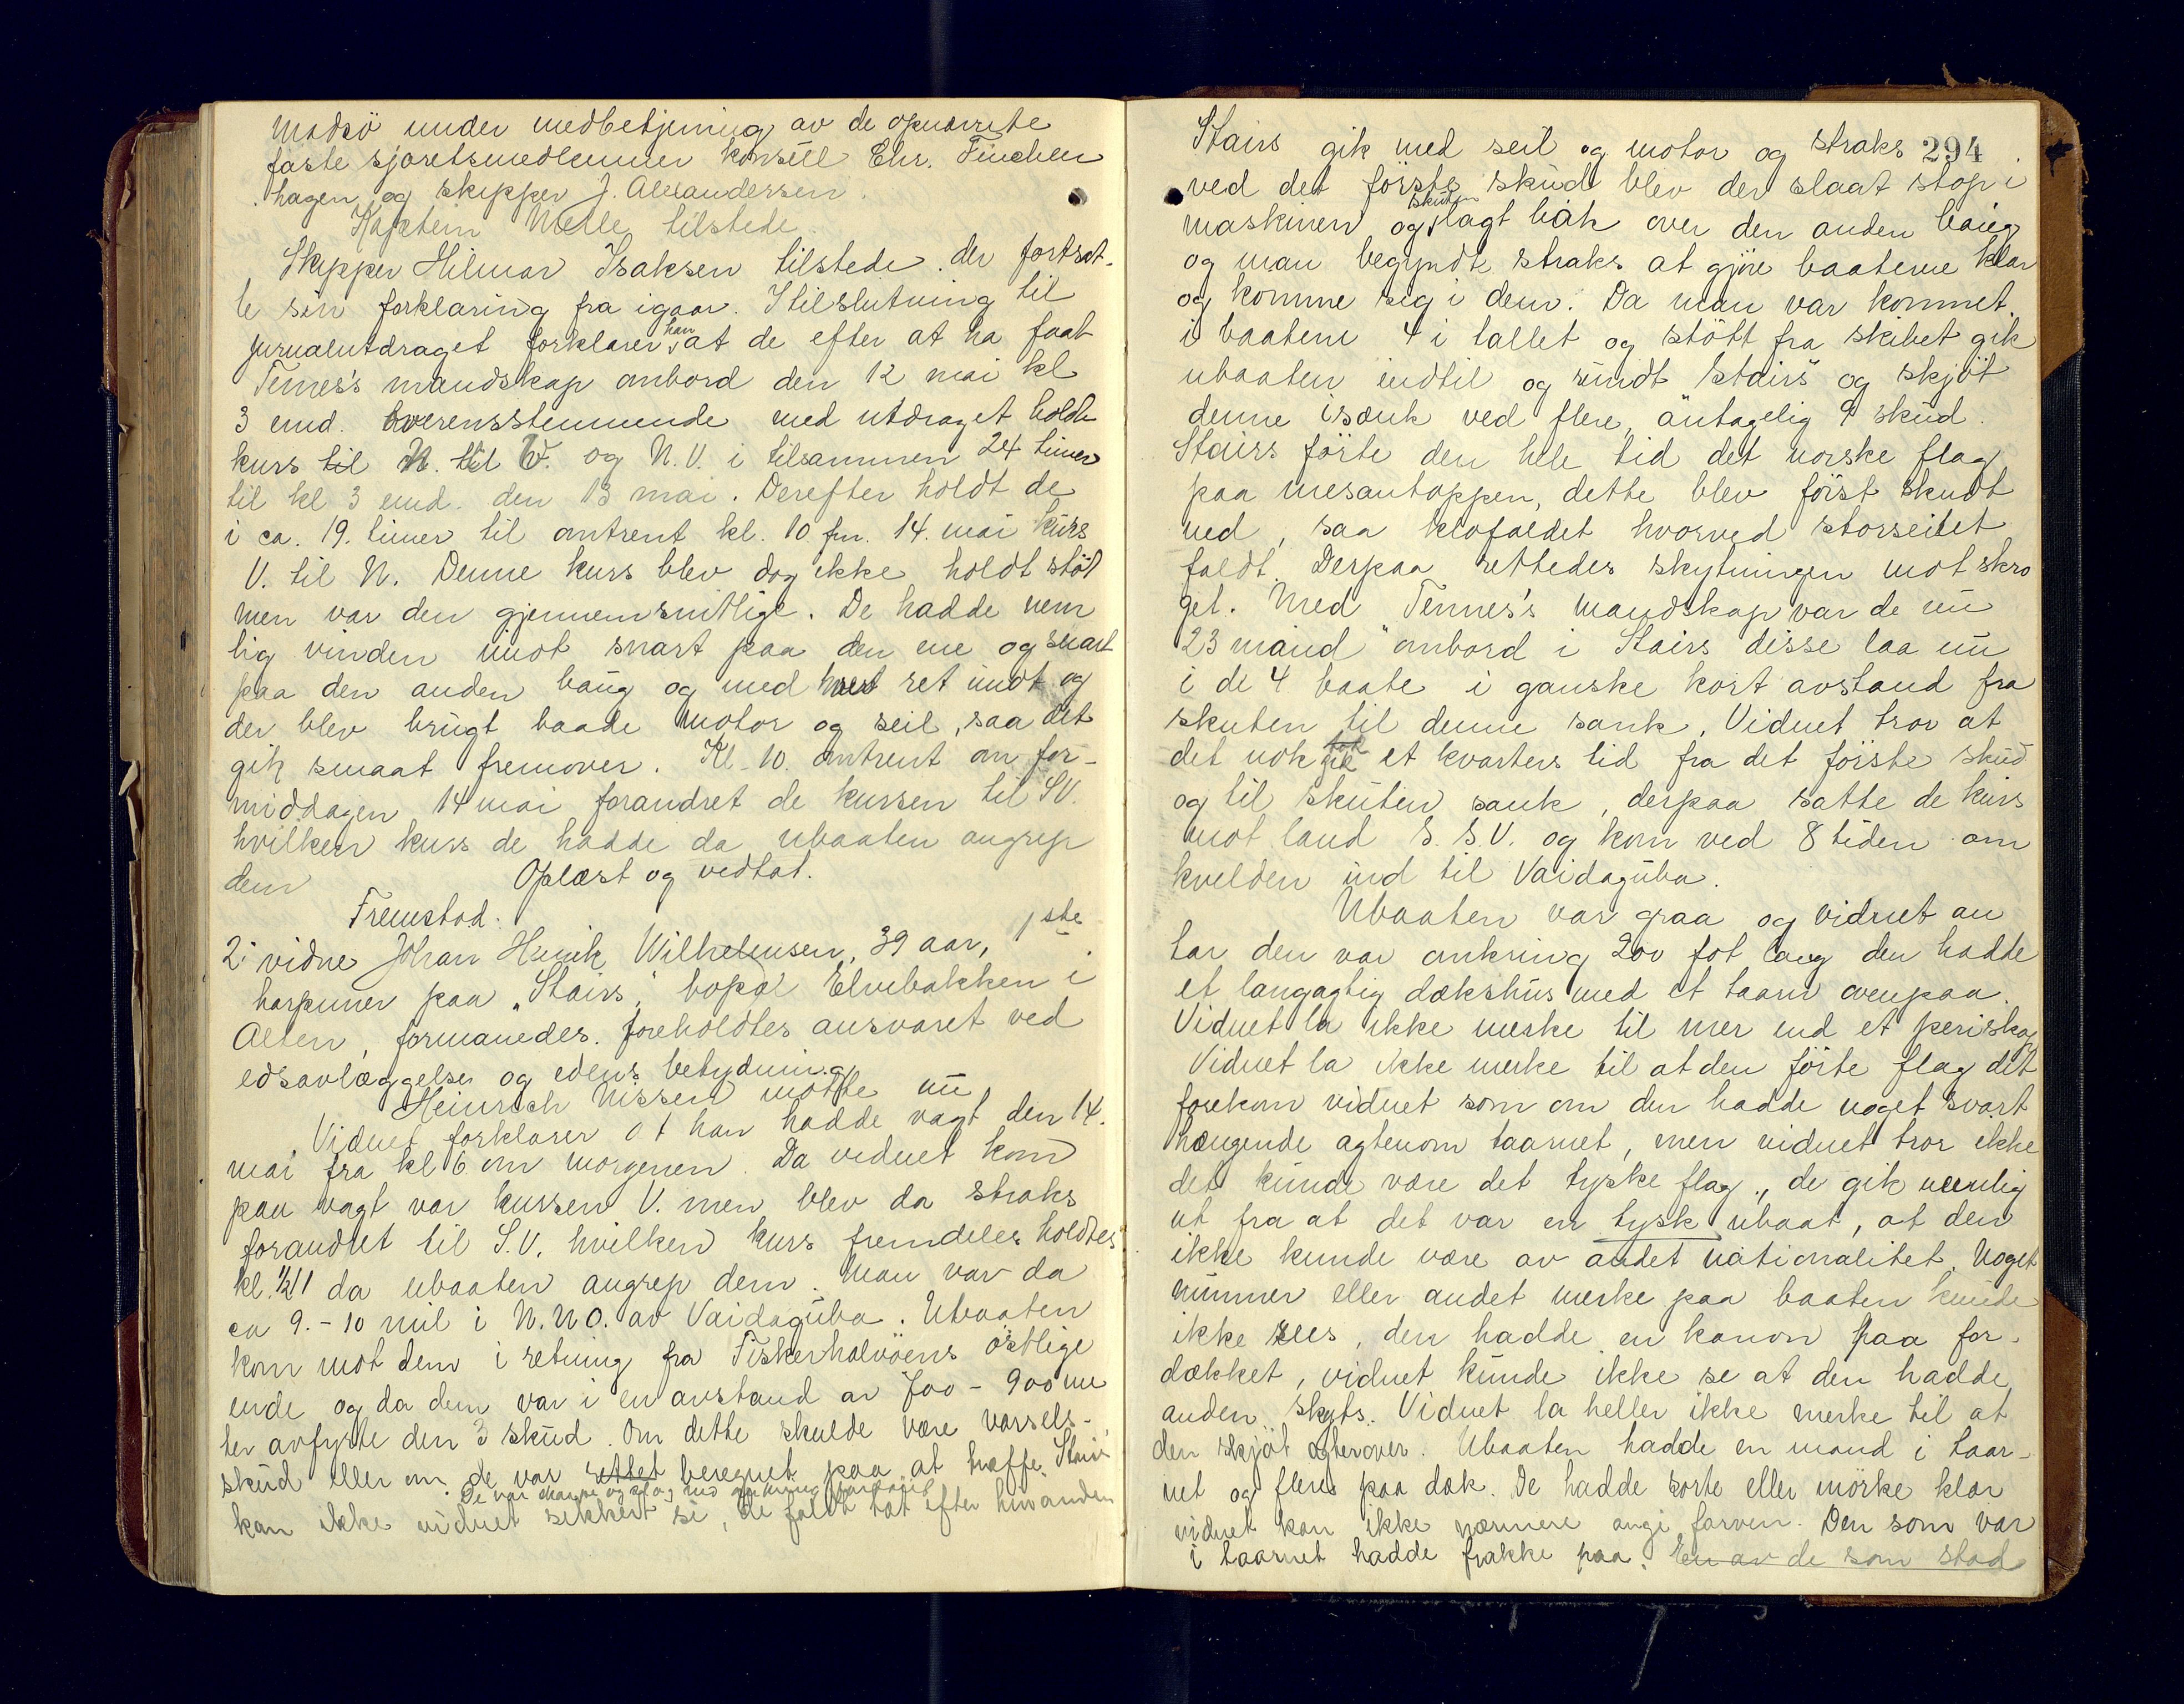 Madsö under medbetjening av de opnævnte
faste sjöretsmedlemmer konsül Chr. Finchen
hagen og skipper J. Alexandersen.
Kaptein Melle tilstede.
Skipper Hilmar Isaksen tilstede. der fortsat-
te sin forklaring fra igaar. I tilslutning til
jurnalutdraget forklarer han at de efter at ha faat
Tennes's mandskap ombord den 12 mai kl
3 emd. overensstemmende med utdraget holdt
kurs til N. til V. og N.V. i tilsammen 24 timer
til kl 3 emd. den 13 mai. Derefter holdt de
i ca. 19. timer til omtrent kl. 10 fm. 14. mai kürs
V. til N. Denne kurs blev dog ikke holdt støt
men var den gjennemsnitlige. De hadde nem
lig vinden imot snart paa den ene og snart
paa den anden baüg og med ret imot og
der blev brügt baade motor og seil, saa det
gik smaat fremover. Kl. 10. omtrent om for-
middagen 14 mai forandret de kursen til SV.
hvilken kurs de hadde da ubaaten angrep
dem Oplæst og vedtat.
Fremstod.
2: vidne Johan Henrik Wilhelmsen, 39 aar, 1ste
harpuner paa "Stairs", bopæl Elvebakken i
Alten, formanedes. foreholdtes ansvaret ved
edsavlæggelse og edens betydning
Heinrich Nissen mötte nü
Vidnet forklarer at han hadde vagt den 14.
mai fra kl 6 om morgenen. Da vidnet kom
paa vagt var kursen V. men blev da straks
forandret til S.V. hvilken kurs fremdeles holdtes
kl. ½11 da ubaaten angrep dem. Man var da
ca 9.-10 mil i N.N.O. av Vaidagüba. Ubaaten
kom mot dem i retning fra Fiskerhalvöens östlige
ende og da dem var i en avstand av 700-900 me
ter avfyrte den 3 sküd. Om dette skulde være varsels-
sküd eller om de var rettet beregnet paa at træffe Stairs
De var skarpe og slog ned omkring
kan ikke vidnet sikkert si, de faldt tæt efter hinanden
Stairs gik med seil og motor og straks 294
ved det förste sküd blev der slaat stop i
maskinen og skuten lagt bak over den anden baug
og man begyndte straks at gjöre baatene klar
og komme sig i dem. Da man var kommet
i baatene 4 i tallet og stött fra skibet gik
ubaaten indtil og rundt Stairs og skjöt
denne isænk ved flere, antagelig 9 sküd.
Stairs förte den hele tid det norske flag
paa mesantoppen, dette blev först skudt
ned, saa klofaldet hvorved storseilet
faldt. Derpaa rettedes skytningen mot skro
get. Med Tennes's mandskap var de nü
23 mand ombord i Stairs disse laa nü
i de 4 baate i ganske kort avstand fra
skuten til denne sank. Vidnet tror at
det nok gik et kvarters tid fra det förste sküd
og til skuten sank, derpaa satte de kürs
mot land S.S.V. og kom ved 8 tiden om
kvelden ind til Vaidagüba.
Ubaaten var graa og vidnet an
tar den var omkring 200 fot lang den hadde
et langagtig dækshüs med et taarn ovenpaa.
Vidnet la ikke merke til mer end et periskop
Vidnet la ikke merke til at den förte flag det
forekom vidnet som om den hadde noget svart
hængende agtenom taarnet, men vidnet tror ikke
det kunde være det tyske flag, de gik nemlig
ut fra at det var en tysk ubaat, at den
ikke kunde være av andet nationalitet. Noget
nümmer eller andet merke paa baaten kunde
ikke sees, den hadde en kanon paa for-
dækket, vidnet künde ikke se at den hadde
anden skyts. Vidnet la heller ikke merke til at
den skjöt agterover. Ubaaten hadde en mand i taar-
net og flere paa dæk. De hadde sorte eller mörke klær
vidnet kan ikke nærmere angi farven. Den som var
i taarnet hadde frakke paa. En av de som stod